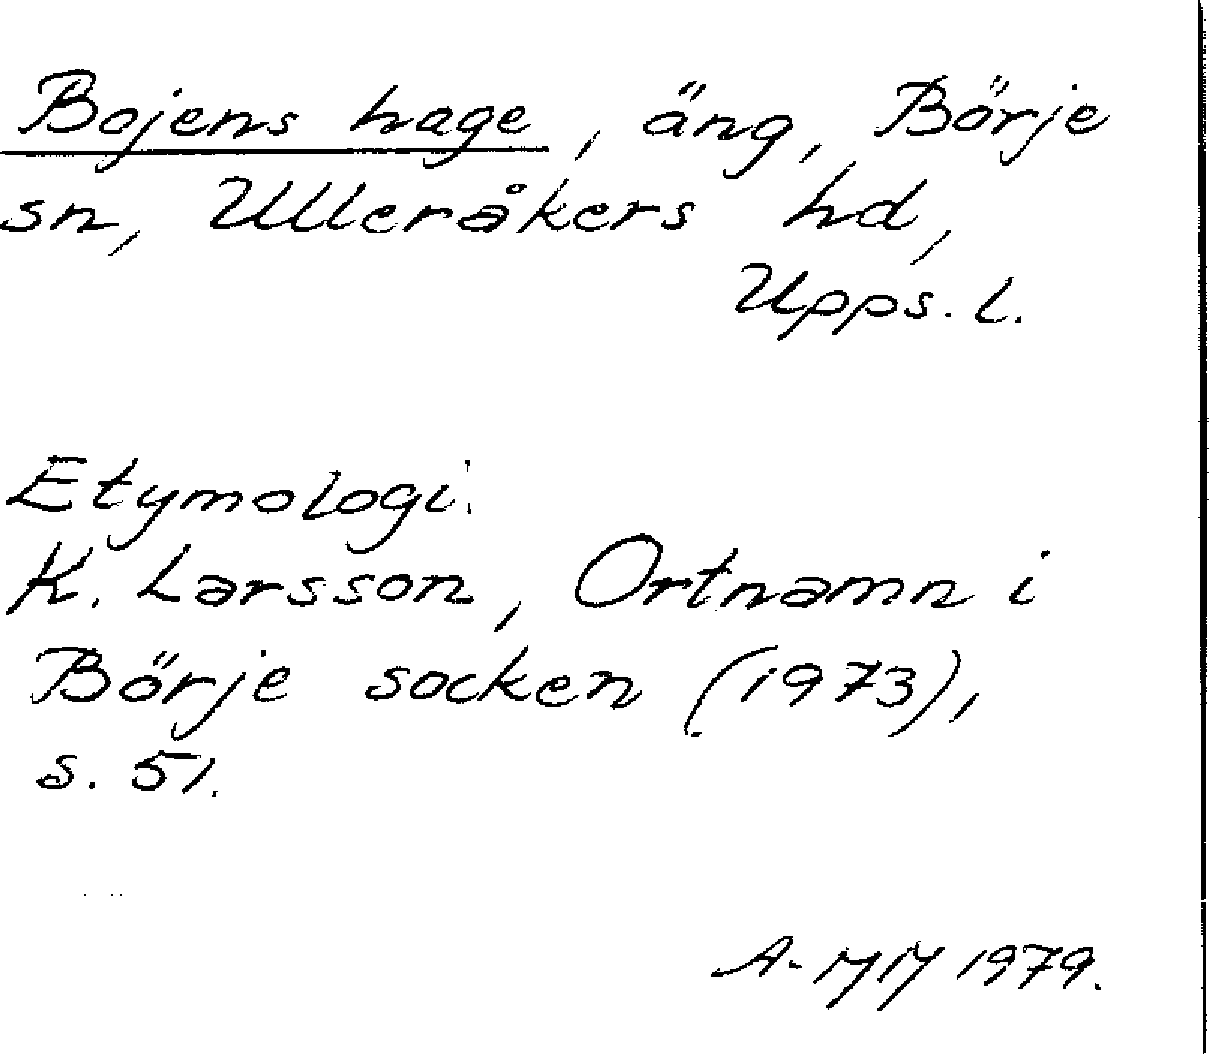 Bojens hage, äng, Börje
sn, Ulleråkers hd,
Upps. l.
Etymologi:
K. Larsson, Ortnamn i
Börje socken (1973),
s. 51.
A-MM 1979.